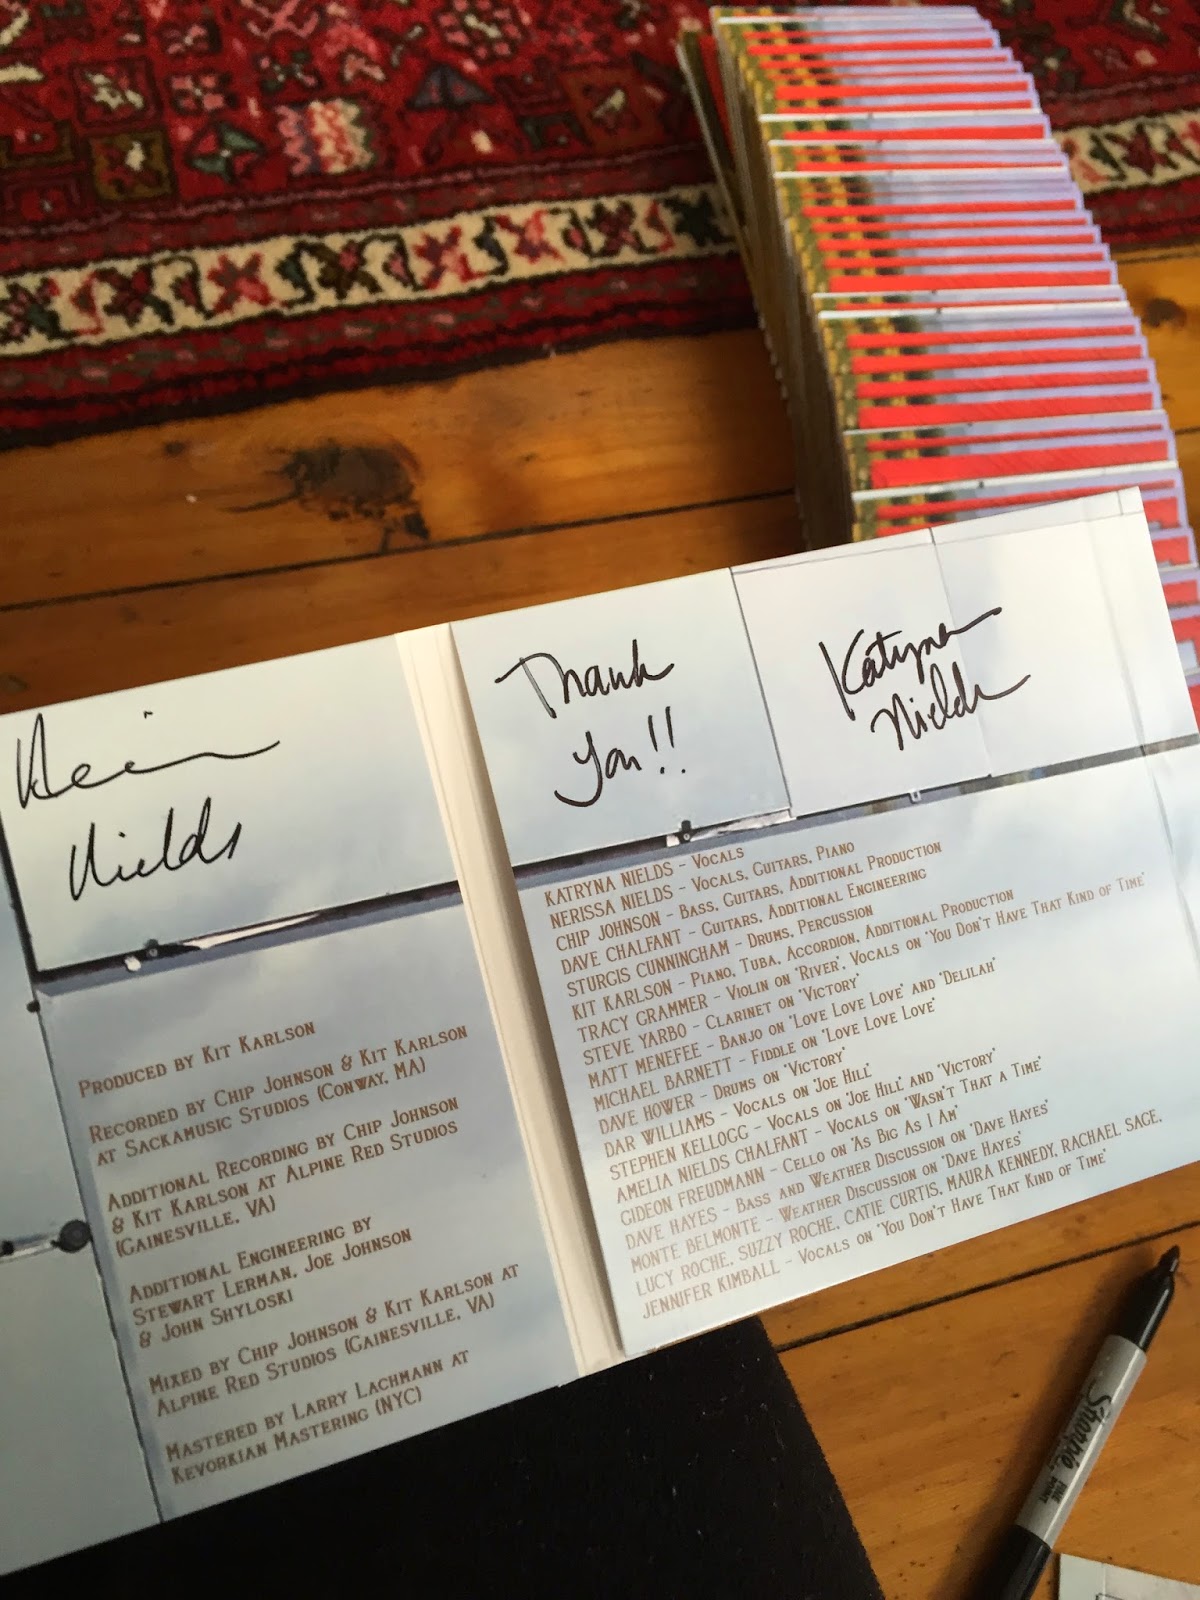 Nields
Thank
you!!
Katryna
Nields
PRODUCED BY KIT KARLSON
RECORDED BY CHIP JOHNSON & KIT KARLSON
AT SACKAMUSIC STUDIOS (CONWAY, MA)
ADDITIONAL RECORDING BY CHIP JOHNSON
& KIT KARLSON AT ALPINE RED STUDIOS
(GAINESVILLE, VA)
ADDITIONAL ENGINEERING BY
STEWART LERMAN, JOE JOHNSON
& JOHN SHYLOSKI
MIXED BY CHIP JOHNSON & KIT KARLSON AT
ALPINE RED STUDIOS (GAINESVILLE, VA)
MASTERED BY LARRY LACHMANN AT
KEVORKIAN MASTERING (NYC)
KATRYNA NIELDS – VOCALS
NERISSA NIELDS – VOCALS, GUITARS, PIANO
CHIP JOHNSON – BASS, GUITARS, ADDITIONAL PRODUCTION
DAVE CHALFANT – GUITARS, ADDITIONAL ENGINEERING
STURGIS CUNNINGHAM – DRUMS, PERCUSSION
KIT KARLSON – PIANO, TUBA, ACCORDION, ADDITIONAL PRODUCTION
TRACY GRAMMER – VIOLIN ON 'RIVER', VOCALS ON 'YOU DON'T HAVE THAT KIND OF TIME'
STEVE YARBO – CLARINET ON 'VICTORY'
MATT MENEFEE – BANJO ON 'LOVE LOVE LOVE' AND 'DELILAH'
MICHAEL BARNETT – FIDDLE ON 'LOVE LOVE LOVE'
DAVE HOWER – DRUMS ON 'VICTORY'
DAR WILLIAMS – VOCALS ON 'JOE HILL'
STEPHEN KELLOGG – VOCALS ON 'JOE HILL' AND 'VICTORY'
AMELIA NIELDS CHALFANT – VOCALS ON 'WASN'T THAT A TIME'
GIDEON FREUDMANN – CELLO ON 'AS BIG AS I AM'
DAVE HAYES – BASS AND WEATHER DISCUSSION ON 'DAVE HAYES'
MONTE BELMONTE – WEATHER DISCUSSION ON 'DAVE HAYES'
LUCY ROCHE, SUZZY ROCHE, CATIE CURTIS, MAURA KENNEDY, RACHAEL SAGE,
JENNIFER KIMBALL – VOCALS ON 'YOU DON'T HAVE THAT KIND OF TIME'
Sharpie.
FINE
POINT